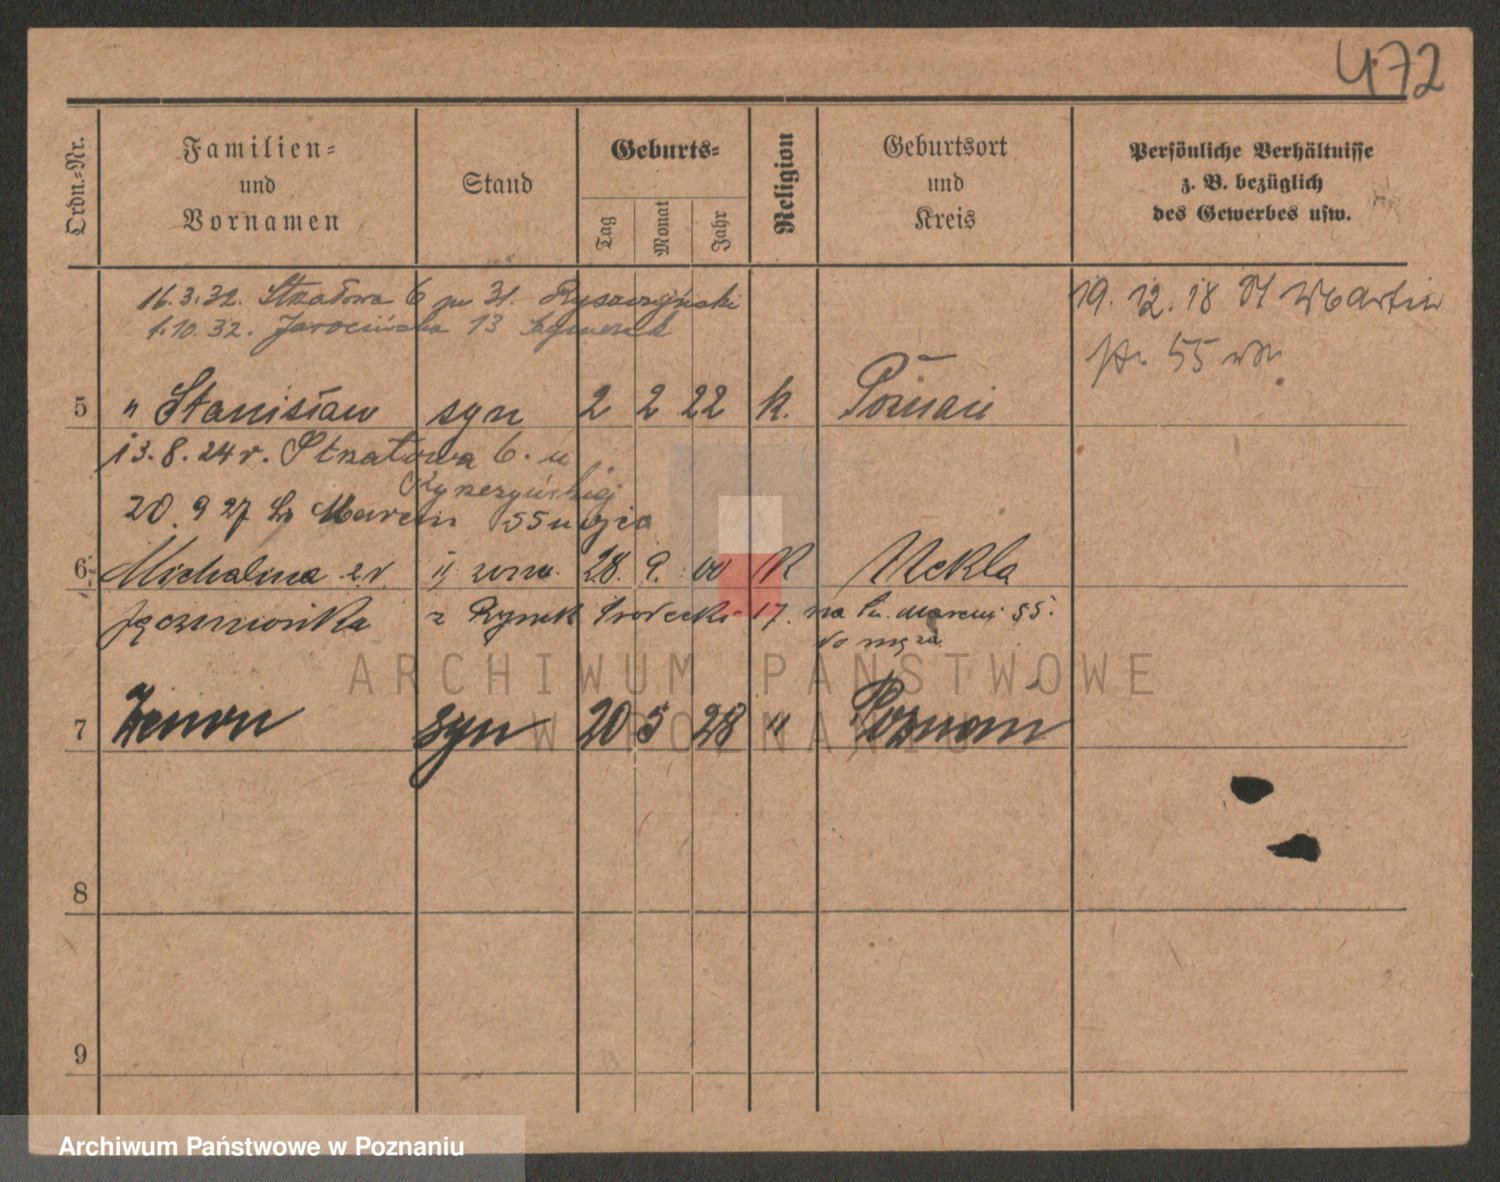 472
Ordn.-Nr.
Familien-
und
Vornamen
Stand
Geburts-
Tag
Monat
Jahr
Religion
Geburtsort
und
Kreis
Persönliche Verhältnisse
z. B. bezüglich
des Gewerbes usw.
16.3.32. Strzałowa 6 31.
1.10.32. Jarocińska 13
19. 12. 18 St Martin
55
5 " Stanisław syn 2 2 22 k. Poznań
13.8.24 r. Strzałowa 6. u
20. 9 27 Św Marcin 55 u ojca
6 Michalina II żona 28. 9. 00 K Nekla
z Rynek Śródecki 17. na Św. Marcin 55.
do męża
7 Zenon syn 20 5 28 " Poznań
8
9
ARCHIWUM PAŃSTWOWE
W POZNANIU
Archiwum Państwowe w Poznaniu